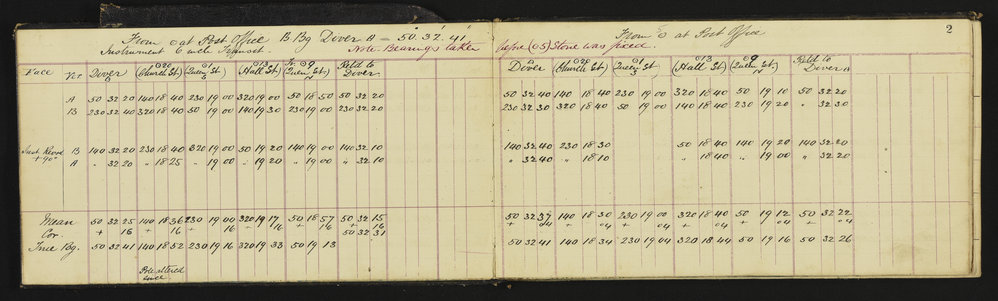 From o at Post Office B Bg Dover A = 50. 32. 41.
Instrument 6 inch Transit. Note Bearings taken before (05) Stone was fixed.
From o at Post Office
2
Face Ver Dover (Church St) (Queen St) (Hall St) (Queen St) Refd to Dover
Dover (Church St) (Queen St) (Hall St) (Queen St) Refd to Dover
A 50 32 20 140 18 40 230 19 00 320 19 00 50 18 50 50 32 20
50 32 40 140 18 40 230 19 00 320 18 40 50 19 10 50 32 20
B 230 32 40 320 18 40 50 19 00 140 19 30 230 19 00 230 32 20
230 32 30 320 18 40 50 19 00 140 18 40 230 19 20 " 32 30
Inst Revd + 90° B 140 32 20 230 18 40 320 19 00 50 19 20 140 19 00 140 32 10
140 32 40 230 18 30 50 18 40 140 19 20 140 32 20
A " 32 20 " 18 25 " 19 00 " 19 20 " 19 00 " 32 10
" 32 40 " 18 10 " 18 40 " 19 00 " 32 20
Mean 50 32 25 140 18 36 230 19 00 320 19 17 50 18 57 50 32 15
50 32 37 140 18 30 230 19 00 320 18 40 50 19 12 50 32 22
Cor. + 16 + 16 + 16 + 16 + 16 + 16
+ 04 + 04 + 04 + 04 + 04 + 04
50 32 31
True Bg. 50 32 41 140 18 52 230 19 16 320 19 33 50 19 13
50 32 41 140 18 34 230 19 04 320 18 44 50 19 16 50 32 26
Pole altered since.